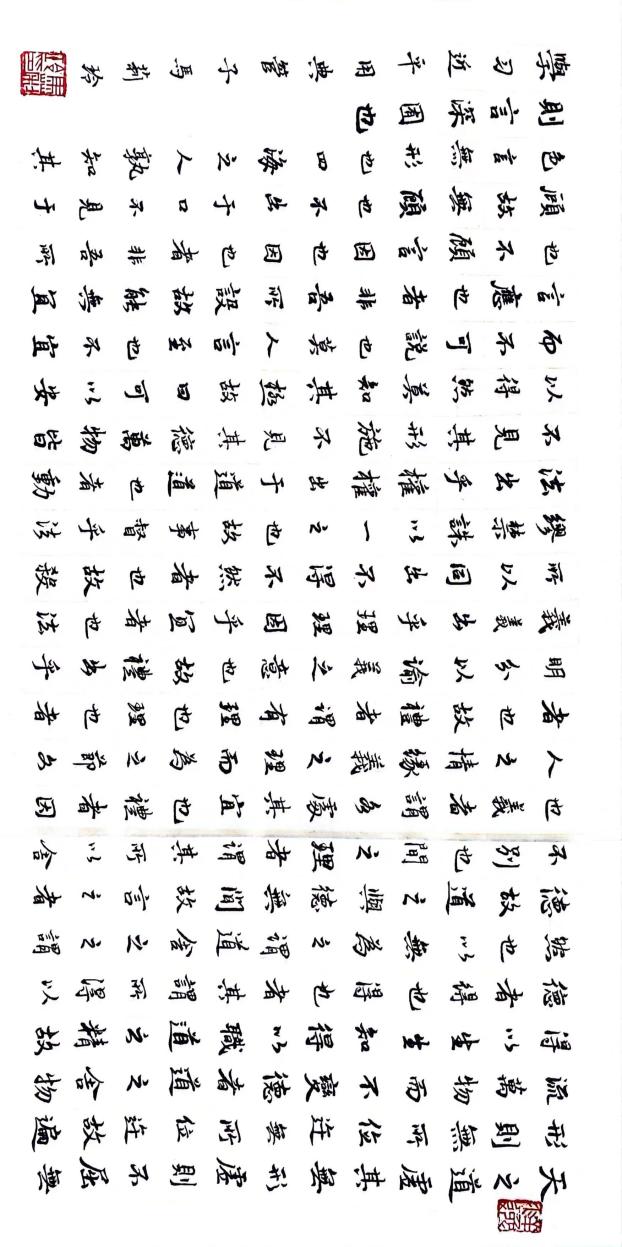 天之道虛其無形虛則不屈無
形則無所位迕無所位迕故遍
流萬物而不變德者道之舍物
得以生生知得以職道之精故
德者得也得也者其謂所得以
然也以無為之謂道舍之之謂
德故道之與德無間故言之者
不別也間之理者謂其所以舍
也義者謂各處其宜也禮者因
人之情緣義之理而為之節文
者也故禮者謂有理也理也者
明分以諭義之意也故禮出乎
義義出乎理理因乎宜者也法
所以同出不得不然者也故殺
繆禁誅以一之也故事督乎法
法出乎權權出于道道也者動
不見其形施不見其德萬物皆
以得然莫知其極故曰可以安
而不可說也莫人言至也不宜
言應也者非吾所設故能無宜
也不顧言因也因也者非吾所
顧故無顧也不出于口不見于
色言無形也四海之人孰知其
則言深囿也
學习近平用典管子馬莉玲